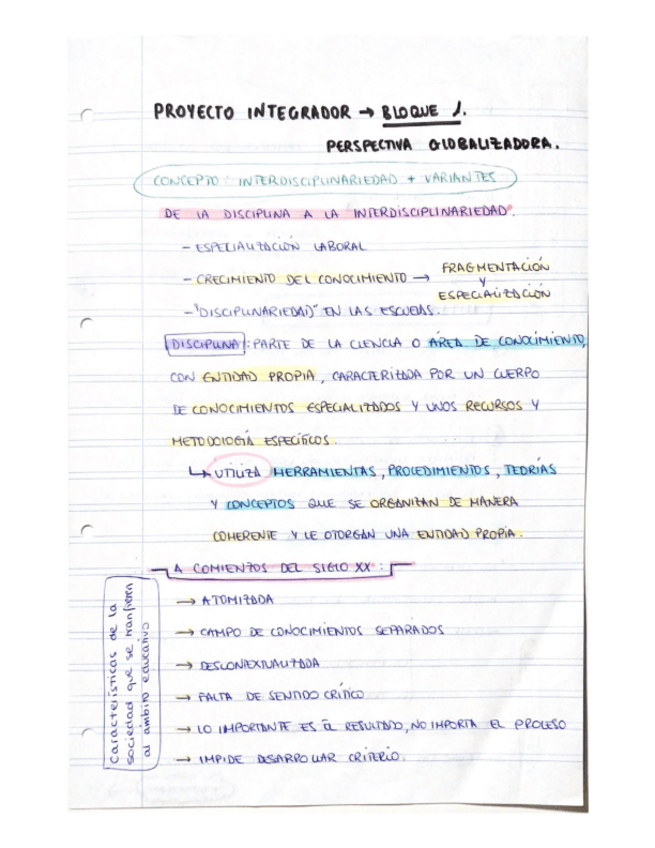 PROYECTO INTEGRADOR → BLOQUE 1.
PERSPECTIVA GLOBALIZADORA.
CONCEPTO: INTERDISCIPLINARIEDAD + VARIANTES
DE LA DISCIPLINA A LA INTERDISCIPLINARIEDAD.
- ESPECIALIZACIÓN LABORAL
- CRECIMIENTO DEL CONOCIMIENTO → FRAGMENTACIÓN
Y
ESPECIALIZACIÓN
- "DISCIPLINARIEDAD" EN LAS ESCUELAS.
DISCIPLINA: PARTE DE LA CIENCIA O ÁREA DE CONOCIMIENTO,
CON ENTIDAD PROPIA, CARACTERIZADA POR UN CUERPO
DE CONOCIMIENTOS ESPECIALIZADOS Y UNOS RECURSOS Y
METODOLOGÍA ESPECÍFICOS.
↳ UTILIZA HERRAMIENTAS, PROCEDIMIENTOS, TEORÍAS
Y CONCEPTOS QUE SE ORGANIZAN DE MANERA
COHERENTE Y LE OTORGAN UNA ENTIDAD PROPIA.
A COMIENZOS DEL SIGLO XX:
Características de la
sociedad que se manfieren
al ámbito educativo
→ ATOMIZADA
→ CAMPO DE CONOCIMIENTOS SEPARADOS
→ DESCONTEXTUALIZADA
→ FALTA DE SENTIDO CRÍTICO
→ LO IMPORTANTE ES EL RESULTADO, NO IMPORTA EL PROCESO
→ IMPIDE DESARROLLAR CRITERIO.